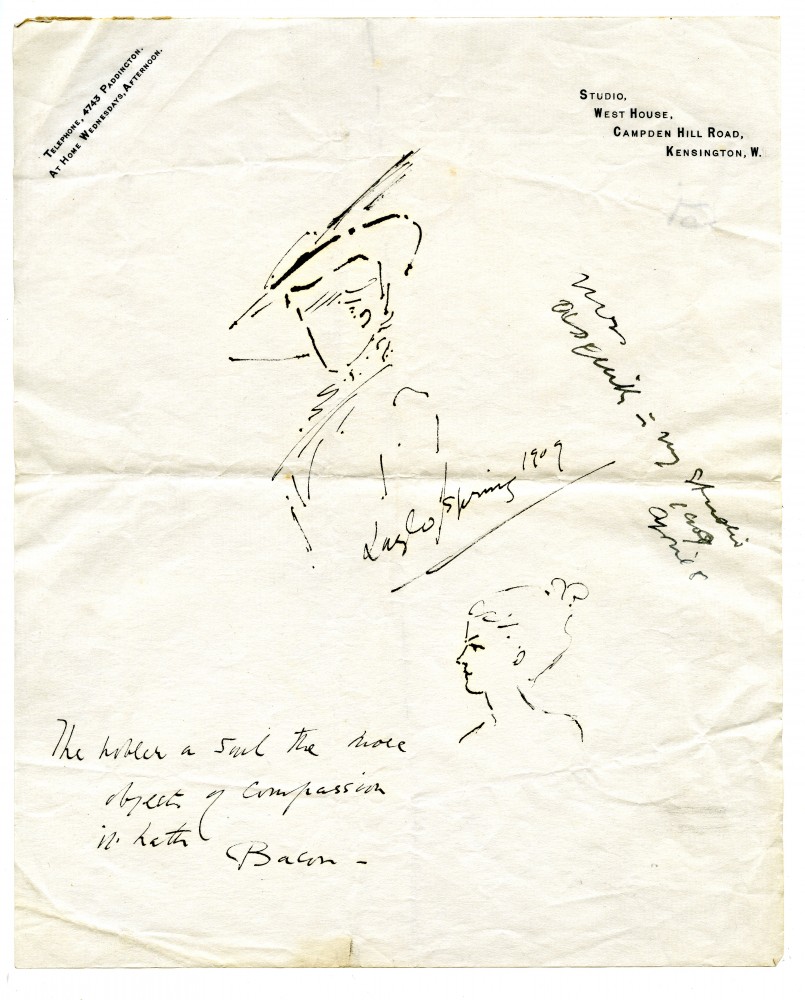 TELEPHONE, 4743 PADDINGTON.
AT HOME WEDNESDAYS, AFTERNOON.
STUDIO,
WEST HOUSE,
CAMPDEN HILL ROAD,
KENSINGTON, W.
Mrs
Asquith in my studio
1909
April
Laszlo/spring 1909
The nobler a soul the more
objects of compassion
it hath
Bacon –